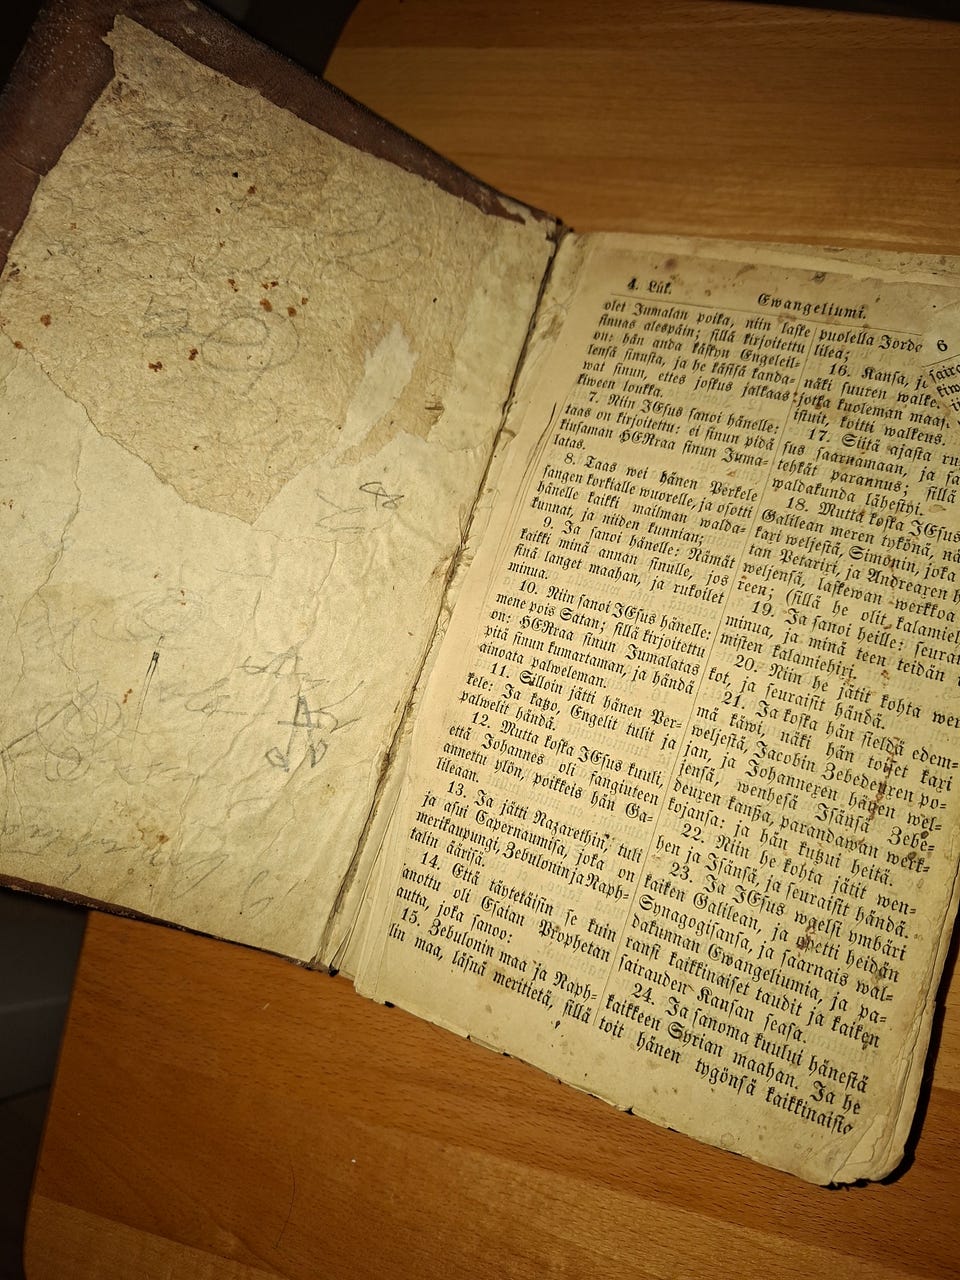 4. Luk.
Ewangeliumi.
6
olet Jumalan poika, niin laske
sinuas alespäin; sillä kirjoitettu
on: hän anda käskyn Engeleil-
lensä sinusta, ja he käsisä kanda-
wat sinun, ettes joskus jalkaas
kiween loukka.
7. Niin JEsus sanoi hänelle:
taas on kirjoitettu: ei sinun pidä
kiusaman HERraa sinun Juma-
latas.
8. Taas wei hänen Perkele
sangen korkialle wuorelle, ja osotti
hänelle kaikki mailman walda-
kunnat, ja niiden kunnian;
9. Ja sanoi hänelle: Nämät
kaikki minä annan sinulle, jos
sinä langet maahan, ja rukoilet
minua.
10. Niin sanoi JEsus hänelle:
mene pois Satan; sillä kirjoitettu
on: HERraa sinun Jumalatas
pitä sinun kumartaman, ja händä
ainoata palweleman.
11. Silloin jätti hänen Per-
kele: Ja katzo, Engelit tulit ja
palwelit händä.
12. Mutta koska JEsus kuuli,
että Johannes oli fangiuteen
annettu ylön, poikkeis hän Ga-
lileaan.
13. Ja jätti Nazarethin, tuli
ja asui Capernaumisa, joka on
merikaupungi, Zebulonin ja Naph-
talin äärisä.
14. Että täytetäisin se kuin
sanottu oli Esaian Prophetan
kautta, joka sanoo:
15. Zebulonin maa ja Naph-
talin maa, läsnä meritietä, sillä
puolella Jorda
lilea;
16. Kansa, j
näki suuren walke
jotka kuoleman maa
istuit, koitti walkeus.
17. Siitä ajasta ru
sus saarnamaan, ja sa
tehkät parannus; sillä
waldakunda lähestyi.
18. Mutta koska JEsus
Galilean meren tykönä, nä
kaxi weljestä, Simonin, joka
tan Petarixi, ja Andreaxen h
weljensä, laskewan werkkoa
reen; (sillä he olit kalamiel
19. Ja sanoi heille: seurat
minua, ja minä teen teidän i
misten kalamiehixi.
20. Niin he jätit kohta wer
kot, ja seuraisit händä.
21. Ja koska hän sieldä edem-
mä käwi, näki hän toiset kaxi
weljestä, Jacobin Zebedeuxen po-
jan, ja Johanneren hänen wel-
jensä, wenhesä Isänsä Zebe-
deuxen kanßa, parandawan werk-
kojansa: ja hän kutzui heitä.
22. Niin he kohta jätit wen-
hen ja Isänsä, ja seuraisit händä.
23. Ja JEsus waelsi ymbäri
kaiken Galilean, ja opetti heidän
Synagogisansa, ja saarnais wal-
dakunnan Ewangeliumia, ja pa-
ransi kaikkinaiset taudit ja kaiken
sairauden Kansan seasa.
24. Ja sanoma kuului hänestä
kaikkeen Syrian maahan. Ja he
toit hänen tygönsä kaikkinaisia